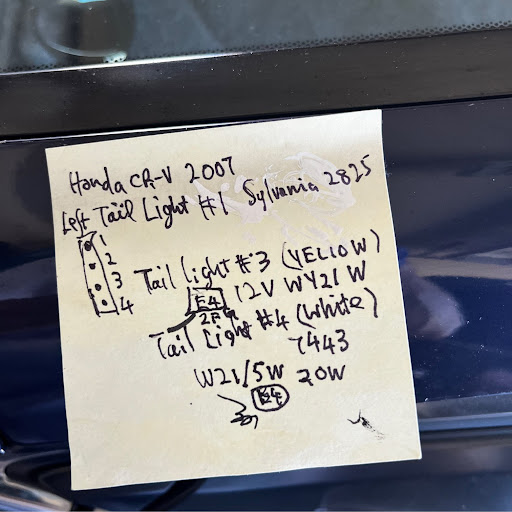 Honda CR-V 2007
Left Tail Light #1 Sylvania 2825
1
2
3
4
Tail light #3 (YELLOW)
12V WY21W
E4
2F
Tail Light #4 (White)
7443
W21/5W 20W
E4